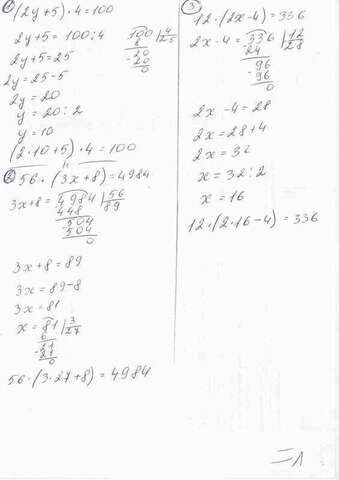 1 (2y+5)·4=100
2y+5=100:4
100|4
8 25
-20
20
0
2y+5=25
2y=25-5
2y=20
y=20:2
y=10
(2·10+5)·4=100
2 56·(3x+8)=4984
3x+8=4984|56
448 89
504
-504
0
3x+8=89
3x=89-8
3x=81
x=81|3
6 27
21
-21
0
56·(3·27+8)=4984
3 12·(2x-4)=336
2x-4=336|12
24 28
96
-96
0
2x-4=28
2x=28+4
2x=32
x=32:2
x=16
12·(2·16-4)=336